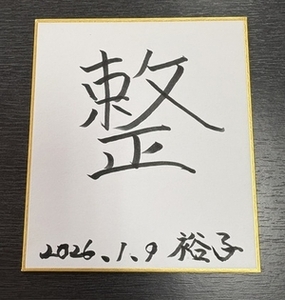 整
2026.1.9 裕子